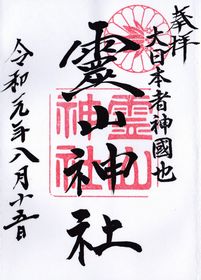 奉拝
大日本者神國也
靈山神社
霊山
神社
令和元年八月十五日